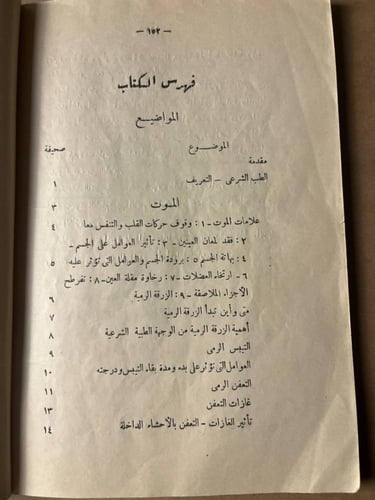 — ١٥٢ —
فهرس الكتاب
المواضيع
الموضوع صحيفة
مقدمة
الطب الشرعى – التعريف ١
الموت ٣
علامات الموت – ١ : وقوف حركات القلب والتنفس معا ٤
٢ : فقد لمعان العينين – ٣ : تأثير العوامل على الجسم –
٤ : بهاتة الجسم ٥ : برودة الجسم والعوامل التى تؤثر عليه ٥
– ٦ : ارتخاء العضلات – ٧ : رخاوة مقلة العين – ٨ : تفرطح
الأجزاء الملاصقة – ٩ : الزرقة الرمية ٦
متى وأين تبدأ الزرقة الرمية ٧
أهمية الزرقة الرمية من الوجهة الطبية الشرعية ٨
التيبس الرمى ٩
العوامل التى تؤثر على بدء ومدة بقاء التيبس ودرجته ١٠
التعفن الرمى ١١
غازات التعفن ١٣
تأثير الغازات – التعفن بالأحشاء الداخلة ١٤